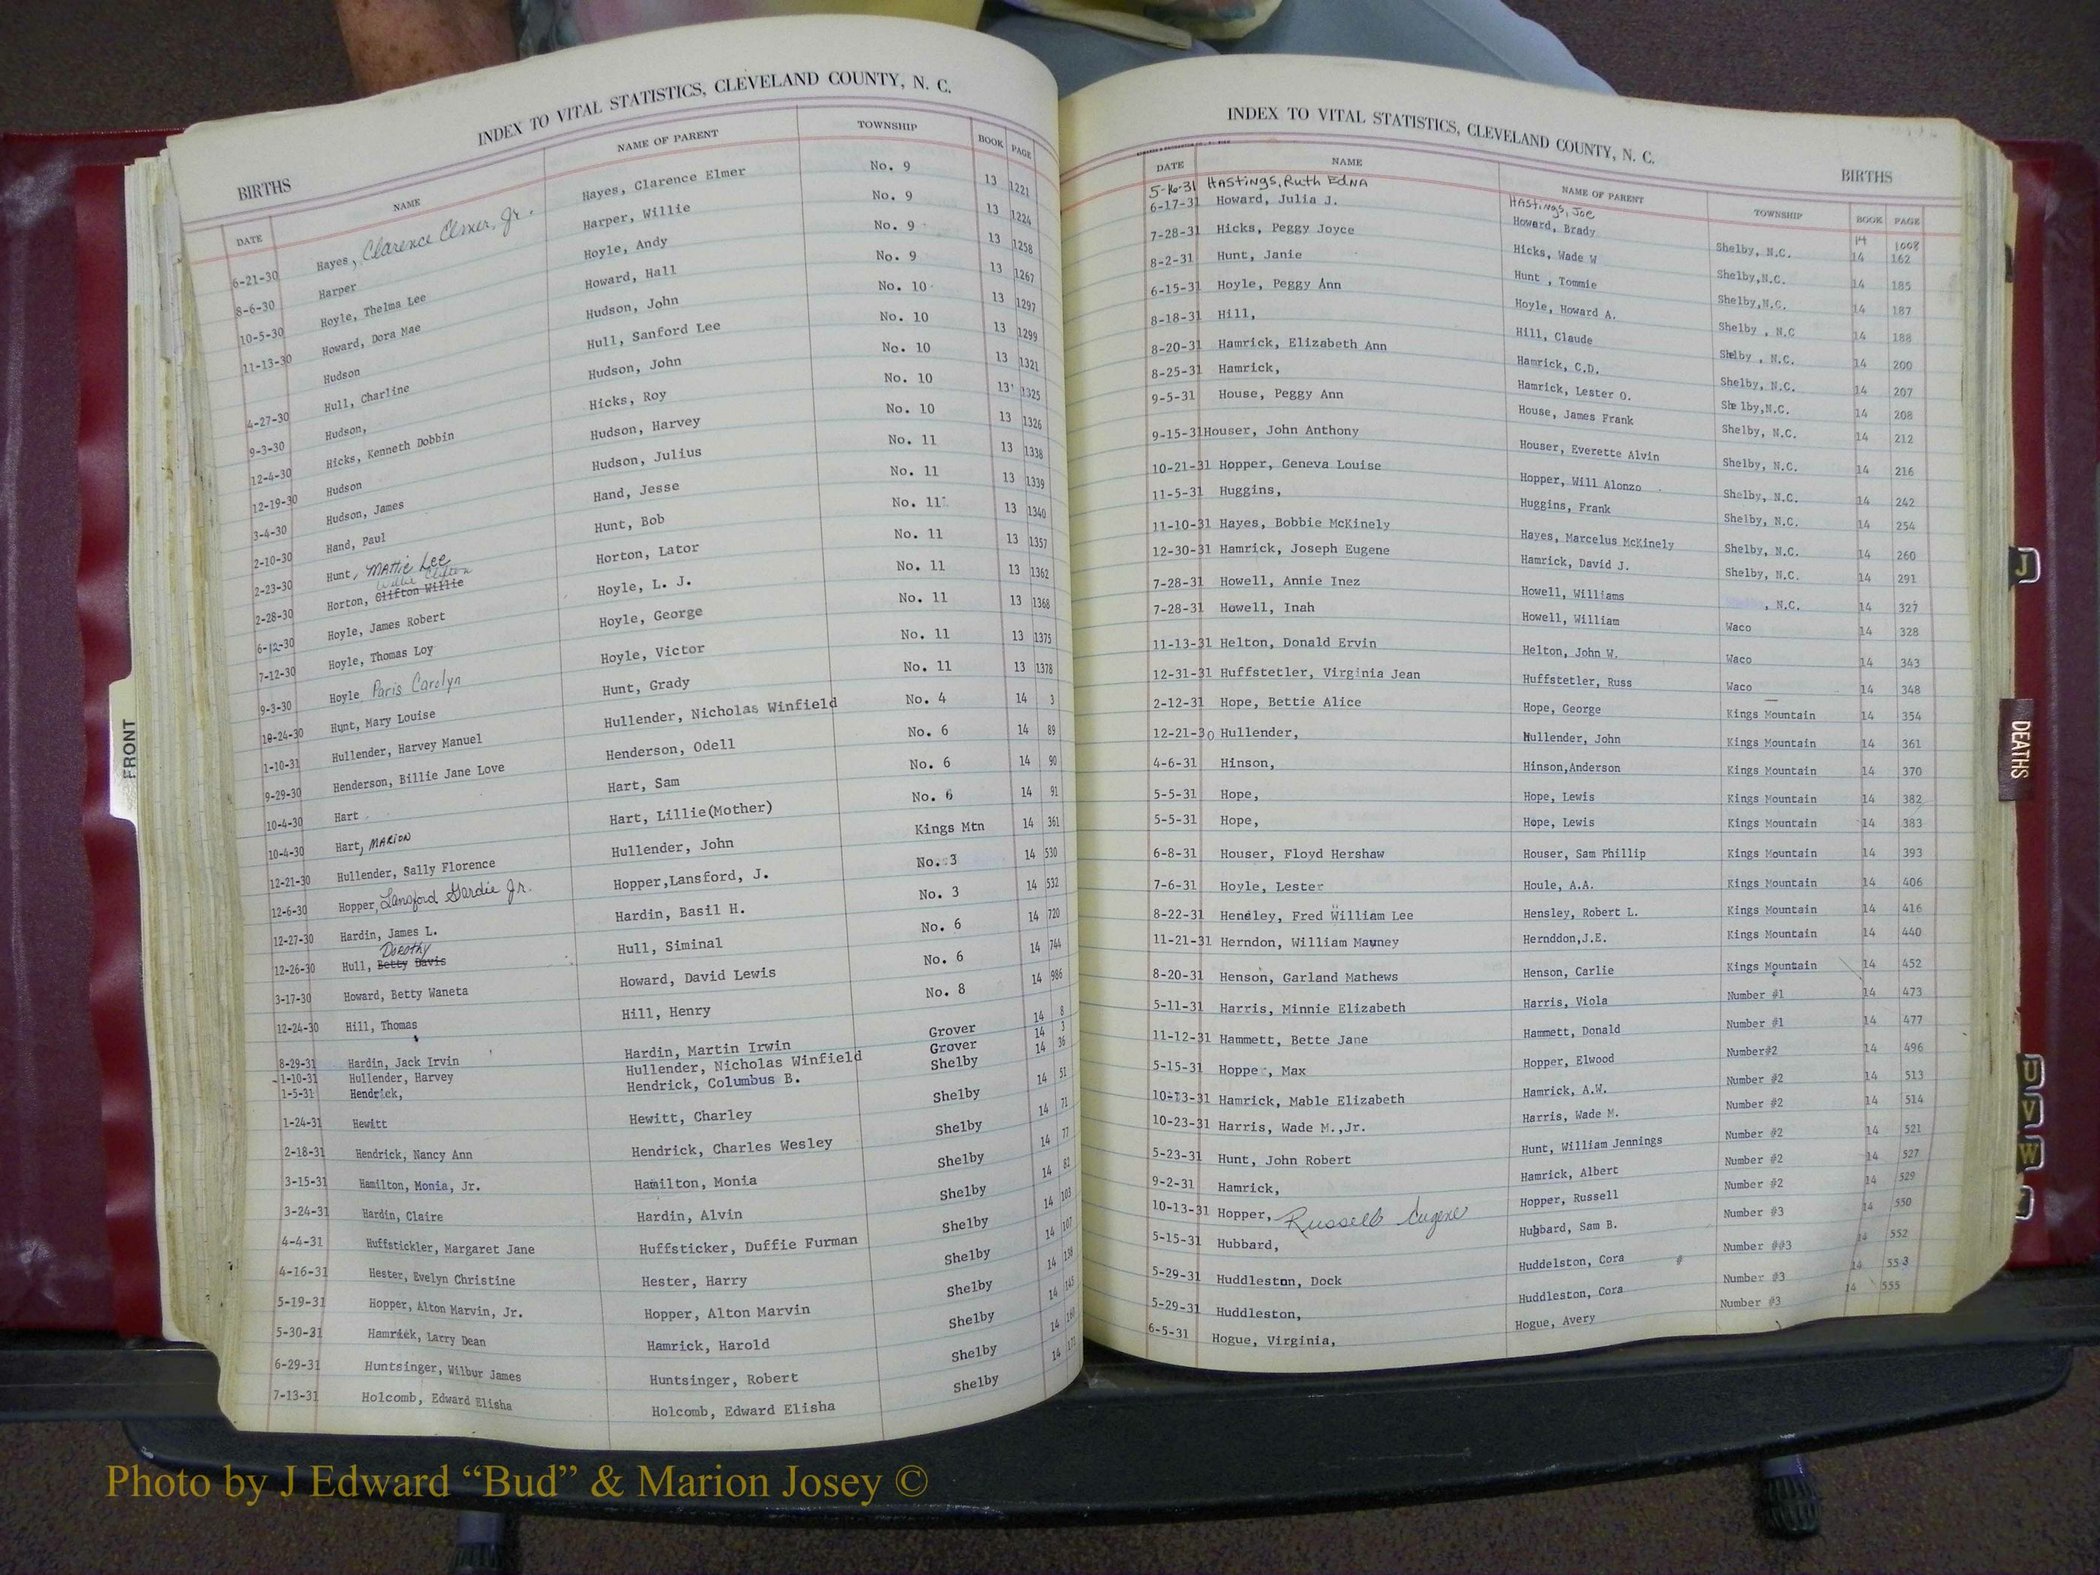 INDEX TO VITAL STATISTICS, CLEVELAND COUNTY, N. C.
BIRTHS
DATE NAME NAME OF PARENT TOWNSHIP BOOK PAGE
6-21-30 Hayes, Clarence Elmer, Jr. Hayes, Clarence Elmer No. 9 13 1221
8-6-30 Harper Harper, Willie No. 9 13 1224
10-5-30 Hoyle, Thelma Lee Hoyle, Andy No. 9 13 1258
11-13-30 Howard, Dora Mae Howard, Hall No. 9 13 1267
Hudson Hudson, John No. 10 13 1297
4-27-30 Hull, Charline Hull, Sanford Lee No. 10 13 1299
9-3-30 Hudson, Hudson, John No. 10 13 1321
12-4-30 Hicks, Kenneth Dobbin Hicks, Roy No. 10 13 1325
12-19-30 Hudson Hudson, Harvey No. 10 13 1326
3-4-30 Hudson, James Hudson, Julius No. 11 13 1338
2-10-30 Hand, Paul Hand, Jesse No. 11 13 1339
2-23-30 Hunt, Mattie Lee Hunt, Bob No. 11 13 1340
Willie Clifton
2-28-30 Horton, Clifton Willie Horton, Lator No. 11 13 1357
6-12-30 Hoyle, James Robert Hoyle, L. J. No. 11 13 1362
7-12-30 Hoyle, Thomas Loy Hoyle, George No. 11 13 1368
9-3-30 Hoyle Paris Carolyn Hoyle, Victor No. 11 13 1375
10-24-30 Hunt, Mary Louise Hunt, Grady No. 11 13 1378
1-10-31 Hullender, Harvey Manuel Hullender, Nicholas Winfield No. 4 14 3
9-29-30 Henderson, Billie Jane Love Henderson, Odell No. 6 14 89
10-4-30 Hart Hart, Sam No. 6 14 90
10-4-30 Hart, MARION Hart, Lillie(Mother) No. 6 14 91
12-21-30 Hullender, Sally Florence Hullender, John Kings Mtn 14 361
12-6-30 Hopper, Lansford Gardie Jr. Hopper,Lansford, J. No. 3 14 530
12-27-30 Hardin, James L. Hardin, Basil H. No. 3 14 532
Dorothy
12-26-30 Hull, Betty Davis Hull, Siminal No. 6 14 720
3-17-30 Howard, Betty Waneta Howard, David Lewis No. 6 14 744
12-24-30 Hill, Thomas Hill, Henry No. 8 14 986
8-29-31 Hardin, Jack Irvin Hardin, Martin Irwin Grover 14 8
1-10-31 Hullender, Harvey Hullender, Nicholas Winfield Grover 14 3
1-5-31 Hendrick, Hendrick, Columbus B. Shelby 14 36
1-24-31 Hewitt Hewitt, Charley Shelby 14 51
2-18-31 Hendrick, Nancy Ann Hendrick, Charles Wesley Shelby 14 71
3-15-31 Hamilton, Monia, Jr. Hamilton, Monia Shelby 14 77
3-24-31 Hardin, Claire Hardin, Alvin Shelby 14 82
4-4-31 Huffstickler, Margaret Jane Huffsticker, Duffie Furman Shelby 14 103
4-16-31 Hester, Evelyn Christine Hester, Harry Shelby 14 107
5-19-31 Hopper, Alton Marvin, Jr. Hopper, Alton Marvin Shelby 14 138
5-30-31 Hamrick, Larry Dean Hamrick, Harold Shelby 14 145
6-29-31 Huntsinger, Wilbur James Huntsinger, Robert Shelby 14 160
7-13-31 Holcomb, Edward Elisha Holcomb, Edward Elisha Shelby 14 171
INDEX TO VITAL STATISTICS, CLEVELAND COUNTY, N. C.
BIRTHS
DATE NAME NAME OF PARENT TOWNSHIP BOOK PAGE
5-16-31 HAStings, Ruth EdNA HAStings, Joe 14 1008
6-17-31 Howard, Julia J. Howard, Brady Shelby, N.C. 14 162
7-28-31 Hicks, Peggy Joyce Hicks, Wade W Shelby,N.C. 14 185
8-2-31 Hunt, Janie Hunt , Tommie Shelby,N.C. 14 187
6-15-31 Hoyle, Peggy Ann Hoyle, Howard A. Shelby , N.C 14 188
8-18-31 Hill, Hill, Claude Shelby , N.C. 14 200
8-20-31 Hamrick, Elizabeth Ann Hamrick, C.D. Shelby, N.C. 14 207
8-25-31 Hamrick, Hamrick, Lester O. Shelby,N.C. 14 208
9-5-31 House, Peggy Ann House, James Frank Shelby, N.C. 14 212
9-15-31 Houser, John Anthony Houser, Everette Alvin Shelby, N.C. 14 216
10-21-31 Hopper, Geneva Louise Hopper, Will Alonzo Shelby, N.C. 14 242
11-5-31 Huggins, Huggins, Frank Shelby, N.C. 14 254
11-10-31 Hayes, Bobbie McKinely Hayes, Marcelus McKinely Shelby, N.C. 14 260
12-30-31 Hamrick, Joseph Eugene Hamrick, David J. Shelby, N.C. 14 291
7-28-31 Howell, Annie Inez Howell, Williams , N.C. 14 327
7-28-31 Howell, Inah Howell, William Waco 14 328
11-13-31 Helton, Donald Ervin Helton, John W. Waco 14 343
12-31-31 Huffstetler, Virginia Jean Huffstetler, Russ Waco 14 348
2-12-31 Hope, Bettie Alice Hope, George Kings Mountain 14 354
12-21-30 Hullender, Hullender, John Kings Mountain 14 361
4-6-31 Hinson, Hinson,Anderson Kings Mountain 14 370
5-5-31 Hope, Hope, Lewis Kings Mountain 14 382
5-5-31 Hope, Hope, Lewis Kings Mountain 14 383
6-8-31 Houser, Floyd Hershaw Houser, Sam Phillip Kings Mountain 14 393
7-6-31 Hoyle, Lester Houle, A.A. Kings Mountain 14 406
8-22-31 Hensley, Fred William Lee Hensley, Robert L. Kings Mountain 14 416
11-21-31 Herndon, William Mauney Hernddon,J.E. Kings Mountain 14 440
8-20-31 Henson, Garland Mathews Henson, Carlie Kings Mountain 14 452
5-11-31 Harris, Minnie Elizabeth Harris, Viola Number #1 14 473
11-12-31 Hammett, Bette Jane Hammett, Donald Number #1 14 477
5-15-31 Hopper, Max Hopper, Elwood Number#2 14 496
10-13-31 Hamrick, Mable Elizabeth Hamrick, A.W. Number #2 14 513
10-23-31 Harris, Wade M.,Jr. Harris, Wade M. Number #2 14 514
5-23-31 Hunt, John Robert Hunt, William Jennings Number #2 14 521
9-2-31 Hamrick, Hamrick, Albert Number #2 14 527
10-13-31 Hopper, Russell Eugene Hopper, Russell Number #2 14 529
5-15-31 Hubbard, Hubbard, Sam B. Number #3 14 550
5-29-31 Huddleston, Dock Huddelston, Cora # Number ##3 14 552
5-29-31 Huddleston, Huddleston, Cora Number #3 14 553
6-5-31 Hogue, Virginia, Hogue, Avery Number #3 14 555
FRONT
J
DEATHS
U
V
W
Photo by J Edward “Bud” & Marion Josey ©